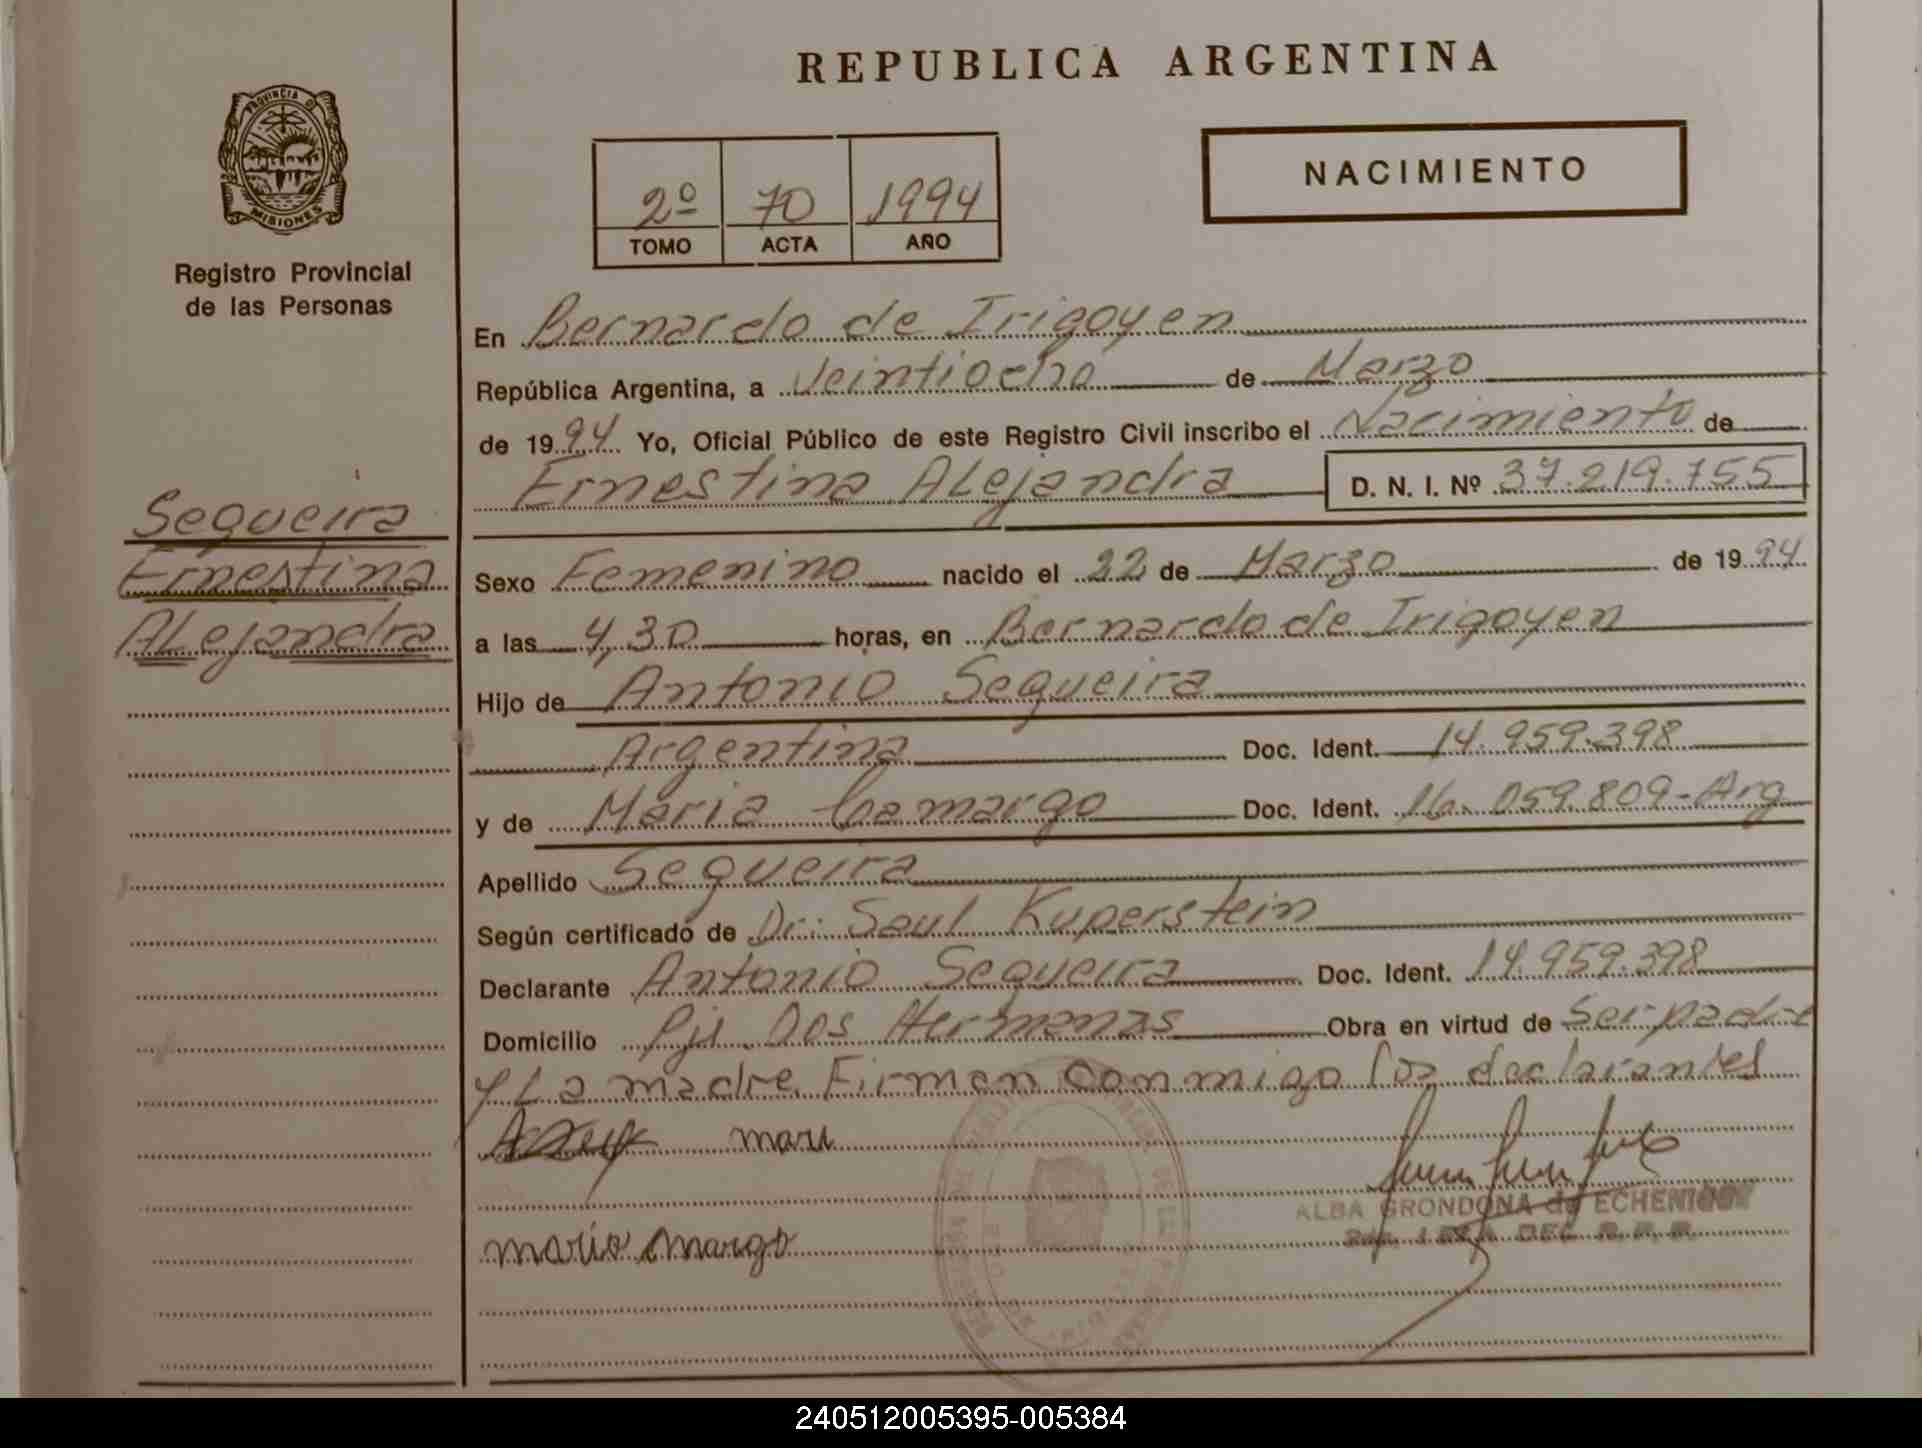 REPUBLICA ARGENTINA
PROVINCIA D
MISIONES
Registro Provincial
de las Personas
NACIMIENTO
2º 70 1994
TOMO ACTA AÑO
En Bernardo de Irigoyen
República Argentina, a Veintiocho de Marzo
de 1994 Yo, Oficial Público de este Registro Civil inscribo el Nacimiento de
Ernestina ALejandra D. N. I. Nº 37.219.755
Sequeira
Ernestina
ALejandra
Sexo Femenino nacido el 22 de Marzo de 1994
a las 4,30 horas, en Bernardo de Irigoyen
Hijo de Antonio Sequeira
Argentina Doc. Ident. 14.959.398
y de Maria Camargo Doc. Ident. 16.059.809-Arg
Apellido Sequeira
Según certificado de Dr: Saul Kuperstein
Declarante Antonio Sequeira Doc. Ident. 14.959.398
Domicilio Pje. Dos Hermanas Obra en virtud de Ser padre
y La madre. Firman conmigo los declarantes
maru
mario margo
ALBA GRONDONA de ECHENIQUE
DEL R. P. P.
240512005395-005384